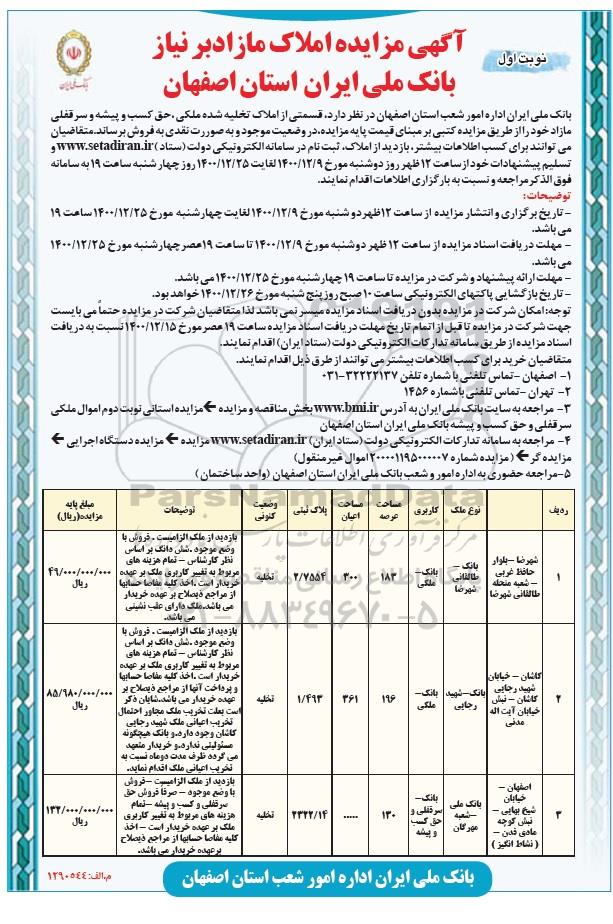 آگهی مزایده املاک مازادبر نیاز
بانک ملی ایران استان اصفهان
نوبت اول
بانک ملی ایران
بانک ملی ایران اداره امور شعب استان اصفهان در نظر دارد، قسمتی از املاک تخلیه شده ملکی ،حق کسب و پیشه و سرقفلی
مازاد خود را از طریق مزایده کتبی بر مبنای قیمت پایه مزایده،در وضعیت موجود و به صورت نقدی به فروش برساند.متقاضیان
می توانند برای کسب اطلاعات بیشتر، بازدید از املاک، ثبت نام در سامانه الکترونیکی دولت (ستاد) www.setadiran.ir و
تسلیم پیشنهادات خود از ساعت ۱۲ ظهر روز دوشنبه مورخ ۱۴۰۰/۱۲/۹ لغایت ۱۴۰۰/۱۲/۲۵ روز چهار شنبه ساعت ۱۹ به سامانه
فوق الذکر مراجعه و نسبت به بارگزاری اطلاعات اقدام نمایند.
توضیحات:
- تاریخ برگزاری و انتشار مزایده از ساعت ۱۲ظهر دو شنبه مورخ ۱۴۰۰/۱۲/۹ لغایت چهارشنبه مورخ ۱۴۰۰/۱۲/۲۵ ساعت ۱۹
می باشد.
- مهلت دریافت اسناد مزایده از ساعت ۱۲ ظهر دوشنبه مورخ ۱۴۰۰/۱۲/۹ تا ساعت ۱۹عصر چهارشنبه مورخ ۱۴۰۰/۱۲/۲۵
می باشد.
- مهلت ارائه پیشنهاد و شرکت در مزایده تا ساعت ۱۹ چهارشنبه مورخ ۱۴۰۰/۱۲/۲۵ می باشد.
- تاریخ بازگشایی پاکتهای الکترونیکی ساعت ۱۰ صبح روز پنج شنبه مورخ ۱۴۰۰/۱۲/۲۶ خواهد بود.
توجه: امکان شرکت در مزایده بدون دریافت اسناد مزایده میسر نمی باشد لذا متقاضیان شرکت در مزایده حتماً می بایست
جهت شرکت در مزایده تا قبل از اتمام تاریخ مهلت دریافت اسناد مزایده ساعت ۱۹ عصر مورخ ۱۴۰۰/۱۲/۱۵ نسبت به دریافت
اسناد مزایده از طریق سامانه تدارکات الکترونیکی دولت (ستاد ایران) اقدام نمایند.
متقاضیان خرید برای کسب اطلاعات بیشتر می توانند از طرق ذیل اقدام نمایند.
۱- اصفهان -تماس تلفنی با شماره تلفن ۳۲۲۲۲۱۳۷-۰۳۱
۲- تهران -تماس تلفنی باشماره ۱۴۵۶
۳- مراجعه به سایت بانک ملی ایران به آدرس www.bmi.ir بخش مناقصه و مزایده ← مزایده استانی نوبت دوم اموال ملکی
سرقفلی و حق کسب و پیشه بانک ملی استان اصفهان
۴- مراجعه به سامانه تدارکات الکترونیکی دولت (ستاد ایران) www.setadiran.ir مزایده ← مزایده دستگاه اجرایی ←
مزایده گر ← ( مزایده شماره ۲۰۰۰۰۱۱۹۵۰۰۰۰۰۷ اموال غیر منقول)
۵-مراجعه حضوری به اداره امور و شعب بانک ملی ایران استان اصفهان (واحد ساختمان )
ردیف نوع ملک کاربری مساحت عرصه مساحت اعیان پلاک ثبتی وضعیت کنونی توضیحات مبلغ پایه مزایده(ریال)
۱
شهرضا -بلوار
حافظ غربی
- شعبه منحله
طالقانی شهرضا
بانک -
طالقانی
شهرضا
بانک-
ملکی
۱۸۳
۳۰۰
۲/۷۵۵۴
تخلیه
بازدید از ملک الزامیست . فروش با
وضع موجود .شش دانگ بر اساس
نظر کارشناس - تمام هزینه های
مربوط به تغییر کاربری ملک بر عهده
خریدار است .اخذ کلیه مفاصا حسابها
از مراجع ذیصلاح بر عهده خریدار
می باشد.ملک دارای عقب نشینی
می باشد.
۴۹/۰۰۰/۰۰۰/۰۰۰
ریال
۲
کاشان - خیابان
شهید رجایی
کاشان - نبش
خیابان آیت اله
مدنی
بانک-شهید
رجایی
بانک-
ملکی
۱۹۶
۳۶۱
۱/۴۹۳
تخلیه
بازدید از ملک الزامیست . فروش با
وضع موجود .شش دانگ بر اساس
نظر کارشناس - تمام هزینه های
مربوط به تغییر کاربری ملک بر عهده
خریدار است .اخذ کلیه مفاصا حسابها
و پرداخت آنها از مراجع ذیصلاح بر
عهده خریدار می باشد.شایان ذکر
است بعلت تخریب ملک مجاور احتمال
تخریب اعیانی ملک شهید رجایی
کاشان وجود دارد.و بانک هیچگونه
مسئولیتی ندارد.و خریدار متعهد
می گردد ظرف مدت دوماه نسبت به
تخریب اعیانی ملک اقدام نماید.
۸۵/۹۸۰/۰۰۰/۰۰۰
ریال
۳
اصفهان -
خیابان
شیخ بهایی -
نبش کوچه
مادی فدن -
( نشاط انگیز )
بانک ملی
-شعبه
مهرگان
بانک-
سرقفلی و
حق کسب
و پیشه
۱۳۰
.....
۲۳۲۲/۱۴
تخلیه
بازدید از ملک الزامیست -فروش
با وضع موجود - صرفاً فروش حق
سرقفلی و کسب و پیشه -تمام
هزینه های مربوط به تغییر کاربری
ملک بر عهده خریدار است - اخذ
کلیه مفاصا حسابها از مراجع ذیصلاح
بر عهده خریدار می باشد.
۱۳۲/۰۰۰/۰۰۰/۰۰۰
ریال
بانک ملی ایران اداره امور شعب استان اصفهان
م.الف: ۱۲۹۰۵۴۴
ParsNamadData
۰۲۱-۸۸۳۴۹۶۷۰-۵